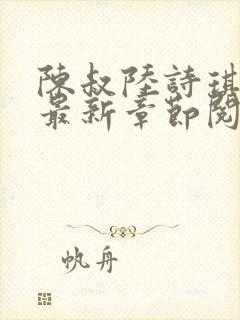 陳叔陸詩琪
最新章節閱
帆舟